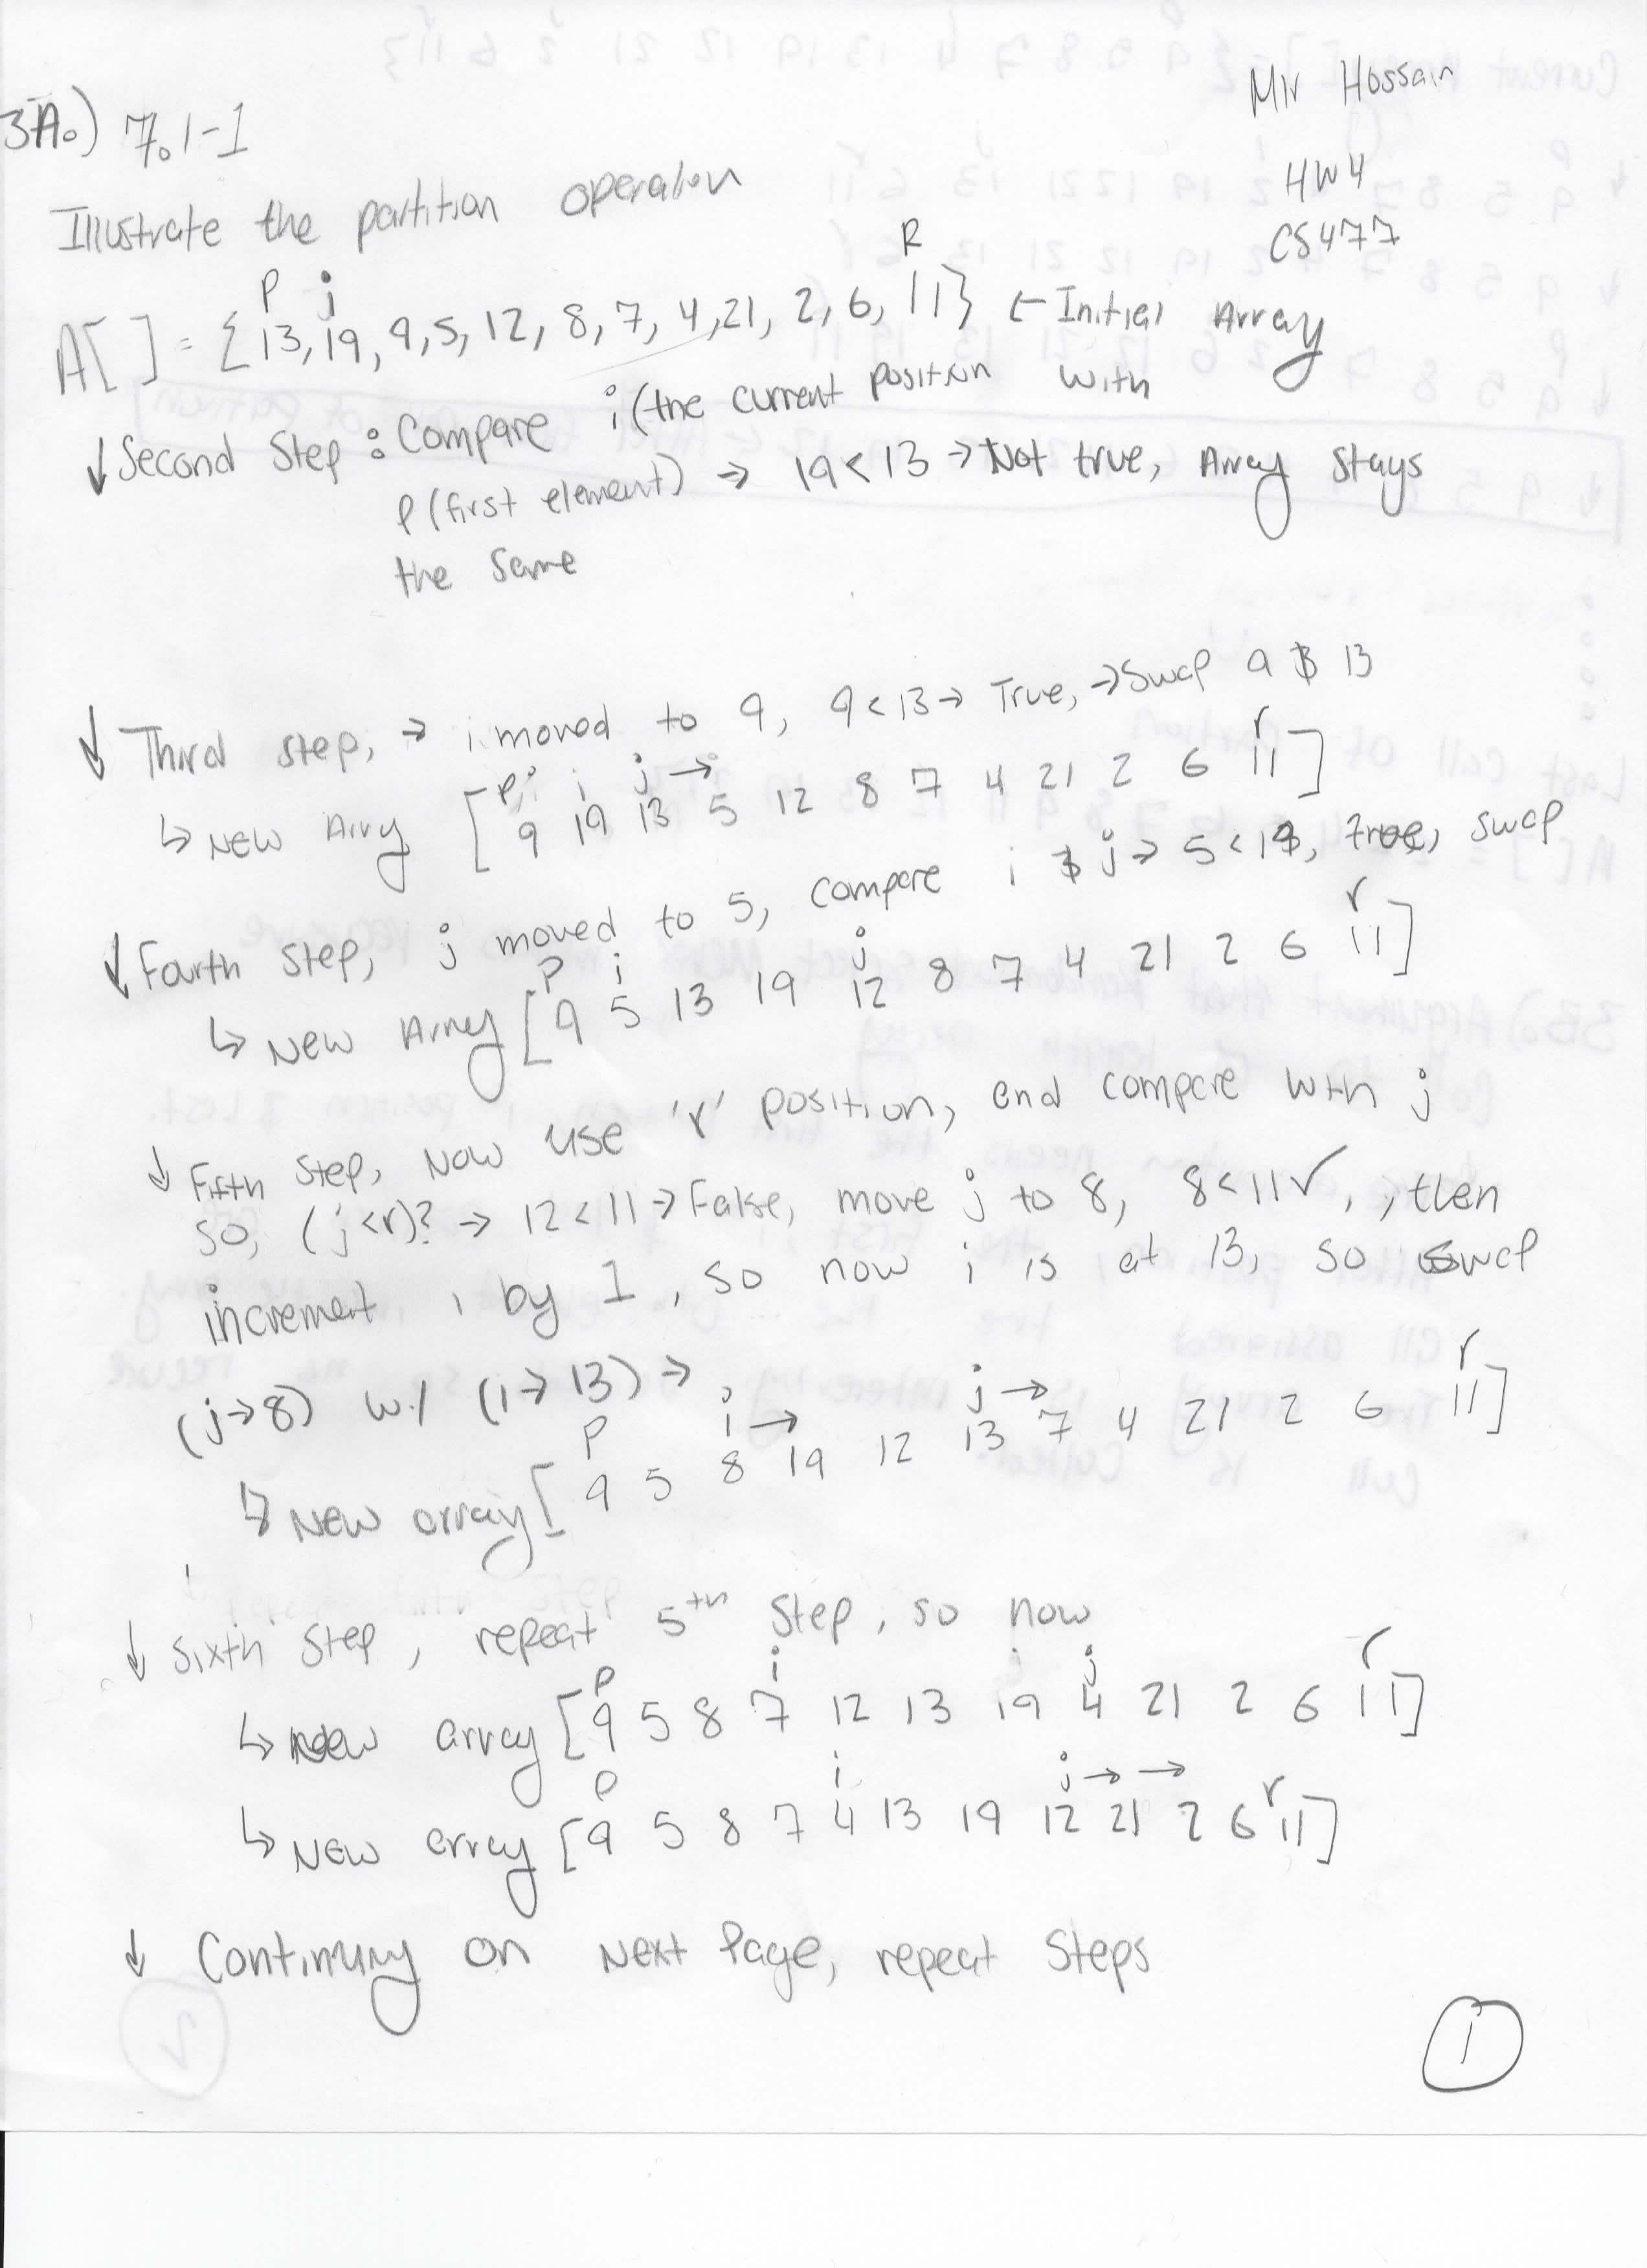 Mir Hossain
HW4
CS477
3A.) 7.1-1
Illustrate the partition operation
P j R
A[ ] = {13, 19, 9, 5, 12, 8, 7, 4, 21, 2, 6, 11} ← Initial Array
↓ Second Step : Compare i (the current position with
P (first element) → 19 < 13 → Not true, Array stays
the same
↓ Third step, → i moved to 9, 9 < 13 → True, → Swap 9 & 13
P i j → r
↳ New Arry [ 9 19 13 5 12 8 7 4 21 2 6 11 ]
↓ Fourth step, j moved to 5, compare i & j → 5 < 19, true, swap
P i j r
↳ New Array [ 9 5 13 19 12 8 7 4 21 2 6 11 ]
↓ Fifth step, Now use 'r' position, and compare with j
so, (j < r)? → 12 < 11 → False, move j to 8, 8 < 11 ✓, , then
increment i by 1, so now i is at 13, so swap
(j → 8) w/ (i → 13) →
P i → j → r
↳ New array [ 9 5 8 19 12 13 7 4 21 2 6 11 ]
↓ Sixth step, repeat 5th step, so now
P i j r
↳ New array [ 9 5 8 7 12 13 19 4 21 2 6 11 ]
P i j → → r
↳ New array [ 9 5 8 7 4 13 19 12 21 2 6 11 ]
↓ Continuing on Next Page, repeat steps
1